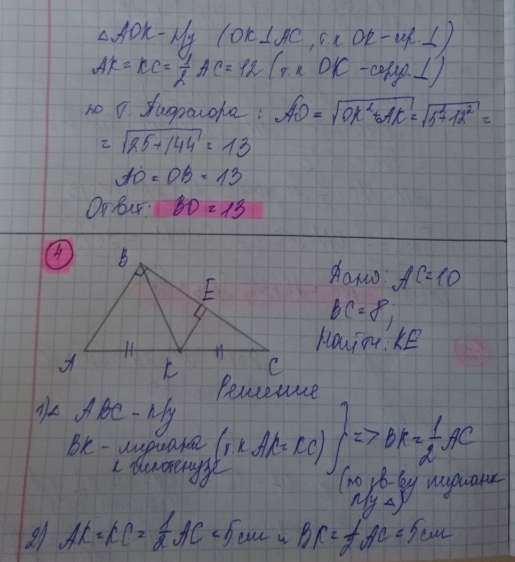 △AOK - п/у (OK⊥AC, т.к OK - сер.⊥)
AK = KC = 1/2 AC = 12 (т.к OK - серед.⊥)
по т. Пифагора: AO = √(OK²+AK²) = √(5²+12²) =
= √(25+144) = 13
AO = OB = 13
Ответ: BO = 13
4
B
E
A
K
C
Дано: AC=10
BC=8;
Найти: KE
Решение
1) △ ABC - п/у
BK - медиана (т.к AK=KC) } => BK = 1/2 AC
к гипотенузе
(по св-ву медианы
п/у △)
2) AK=KC= 1/2 AC = 5 см и BK = 1/2 AC = 5 см